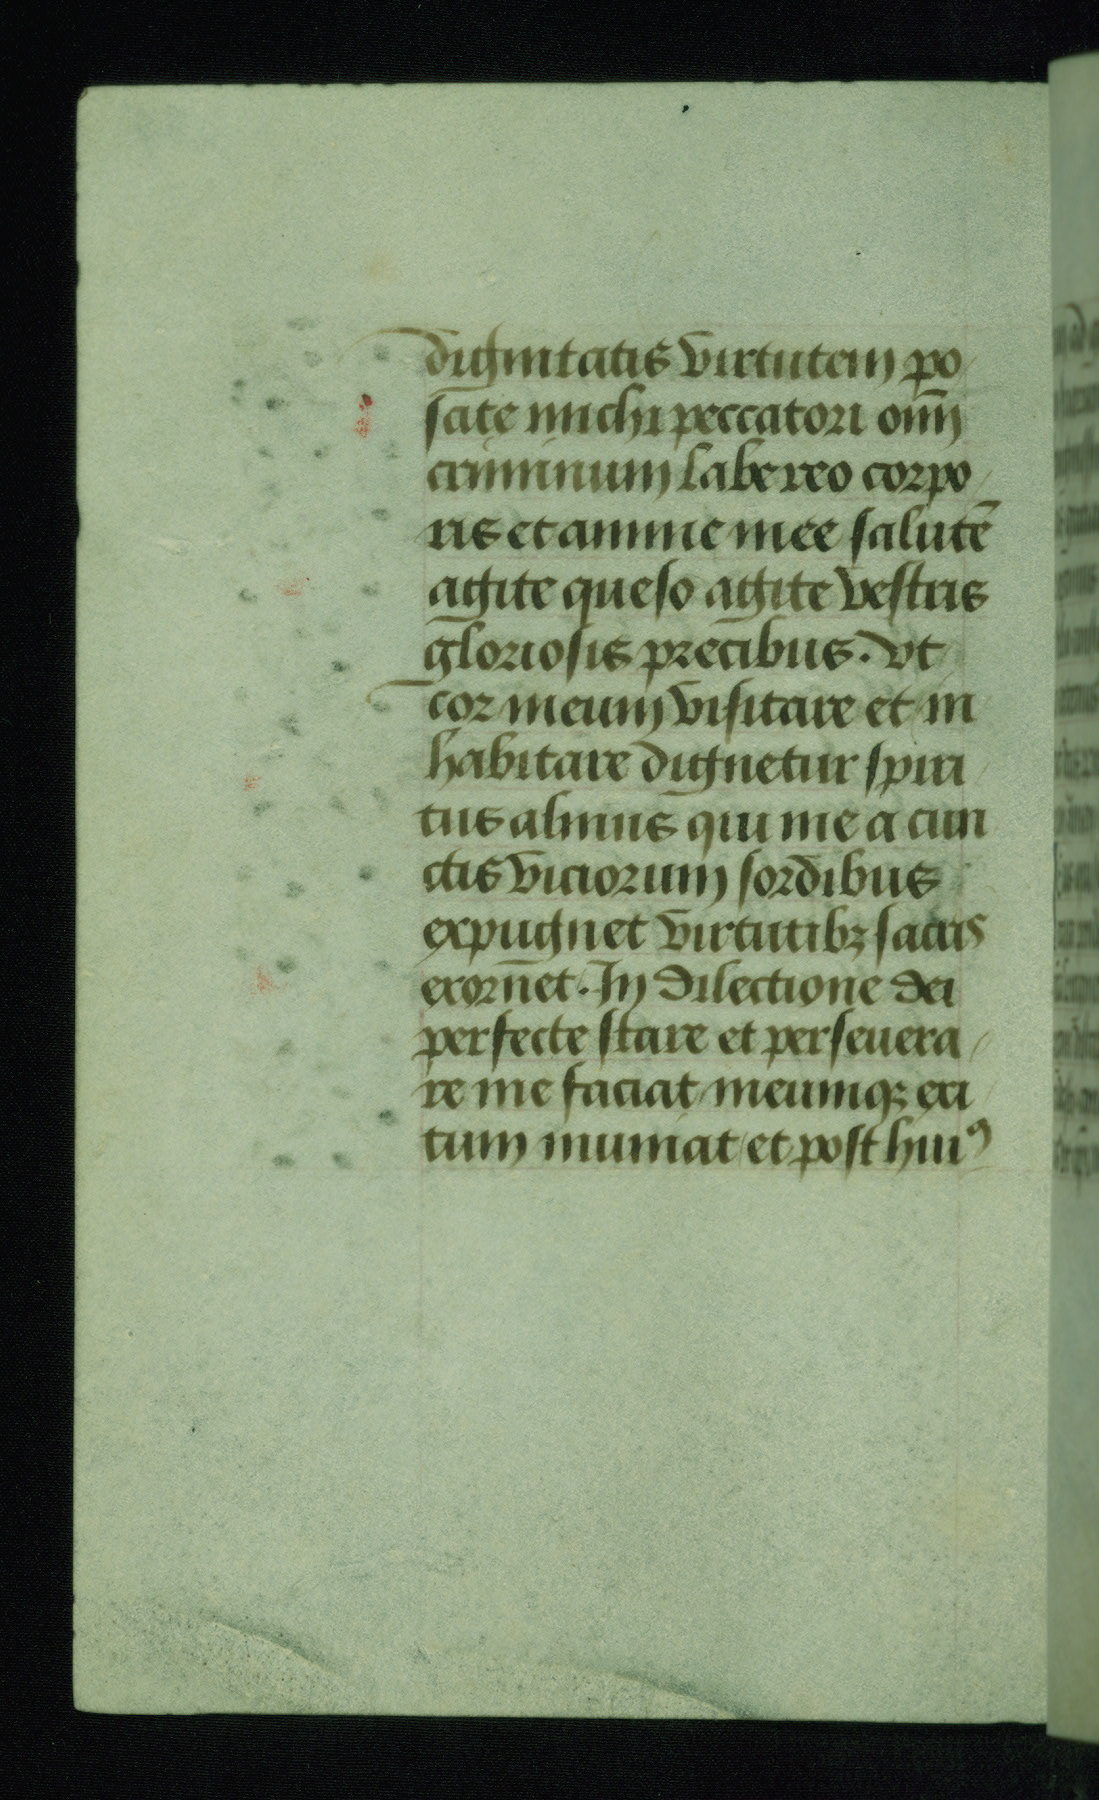 dignitatis virtutem po
scite michi peccatori om̄
criminum labe reo corpo
ris et anime mee salutē
agite queso agite vestris
gloriosis precibus. vt
cor meum visitare et in
habitare dignetur spiri
tus almus qui me a cun
ctis viciorum sordibus
expugnet virtutibꝫ sacris
exorn̄et. In dilectione dei
perfecte stare et perseuera
re me faciat meumqꝫ exi
tum muniat et post huiꝰ